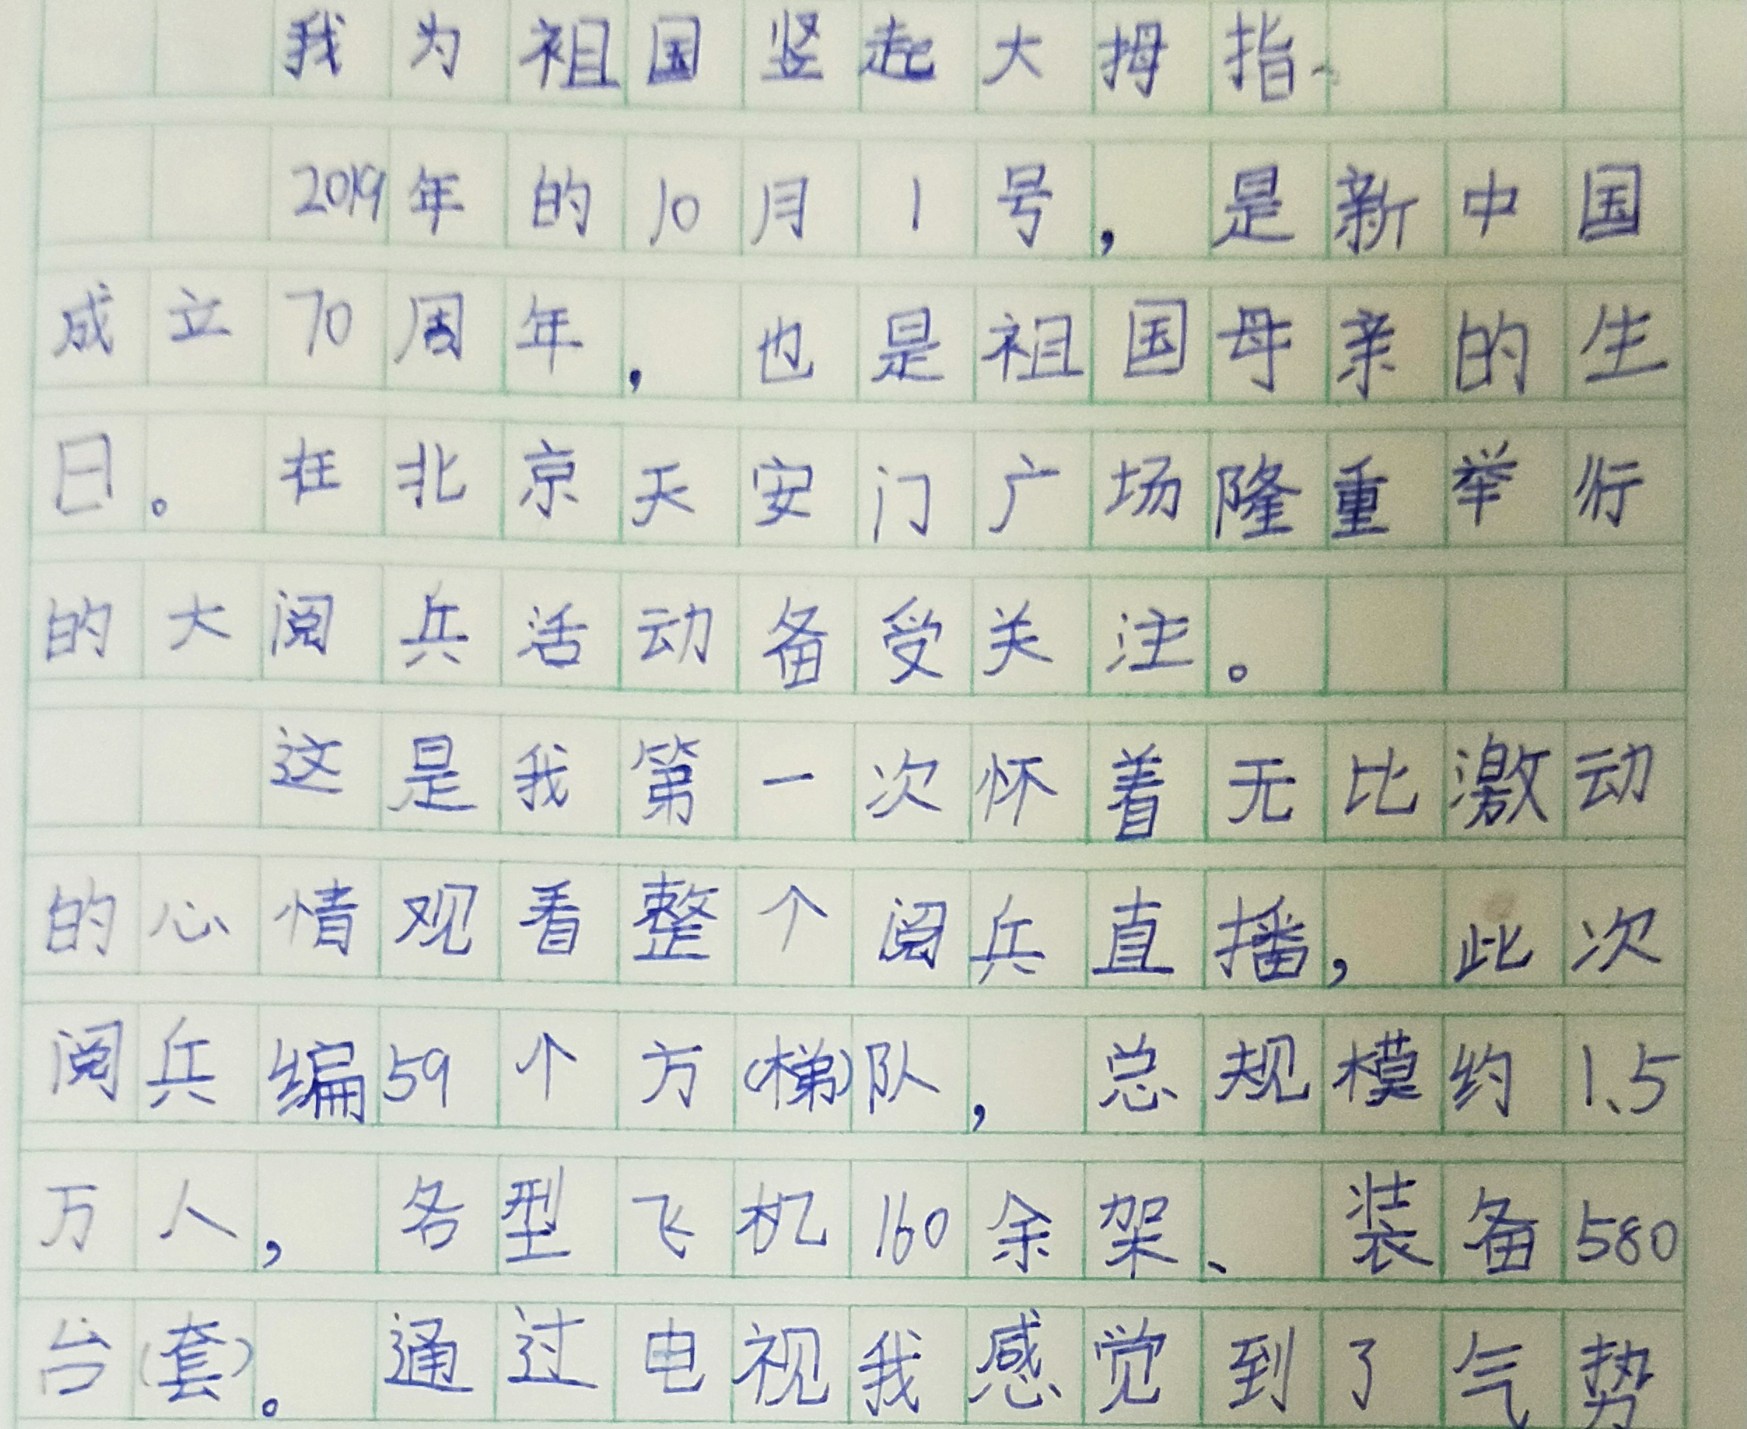 我为祖国竖起大拇指、
2019年的10月1号，是新中国
成立70周年，也是祖国母亲的生
日。在北京天安门广场隆重举行
的大阅兵活动备受关注。
这是我第一次怀着无比激动
的心情观看整个阅兵直播，此次
阅兵编59个方(梯)队，总规模约1.5
万人，各型飞机160余架、装备580
台(套)。通过电视我感觉到了气势